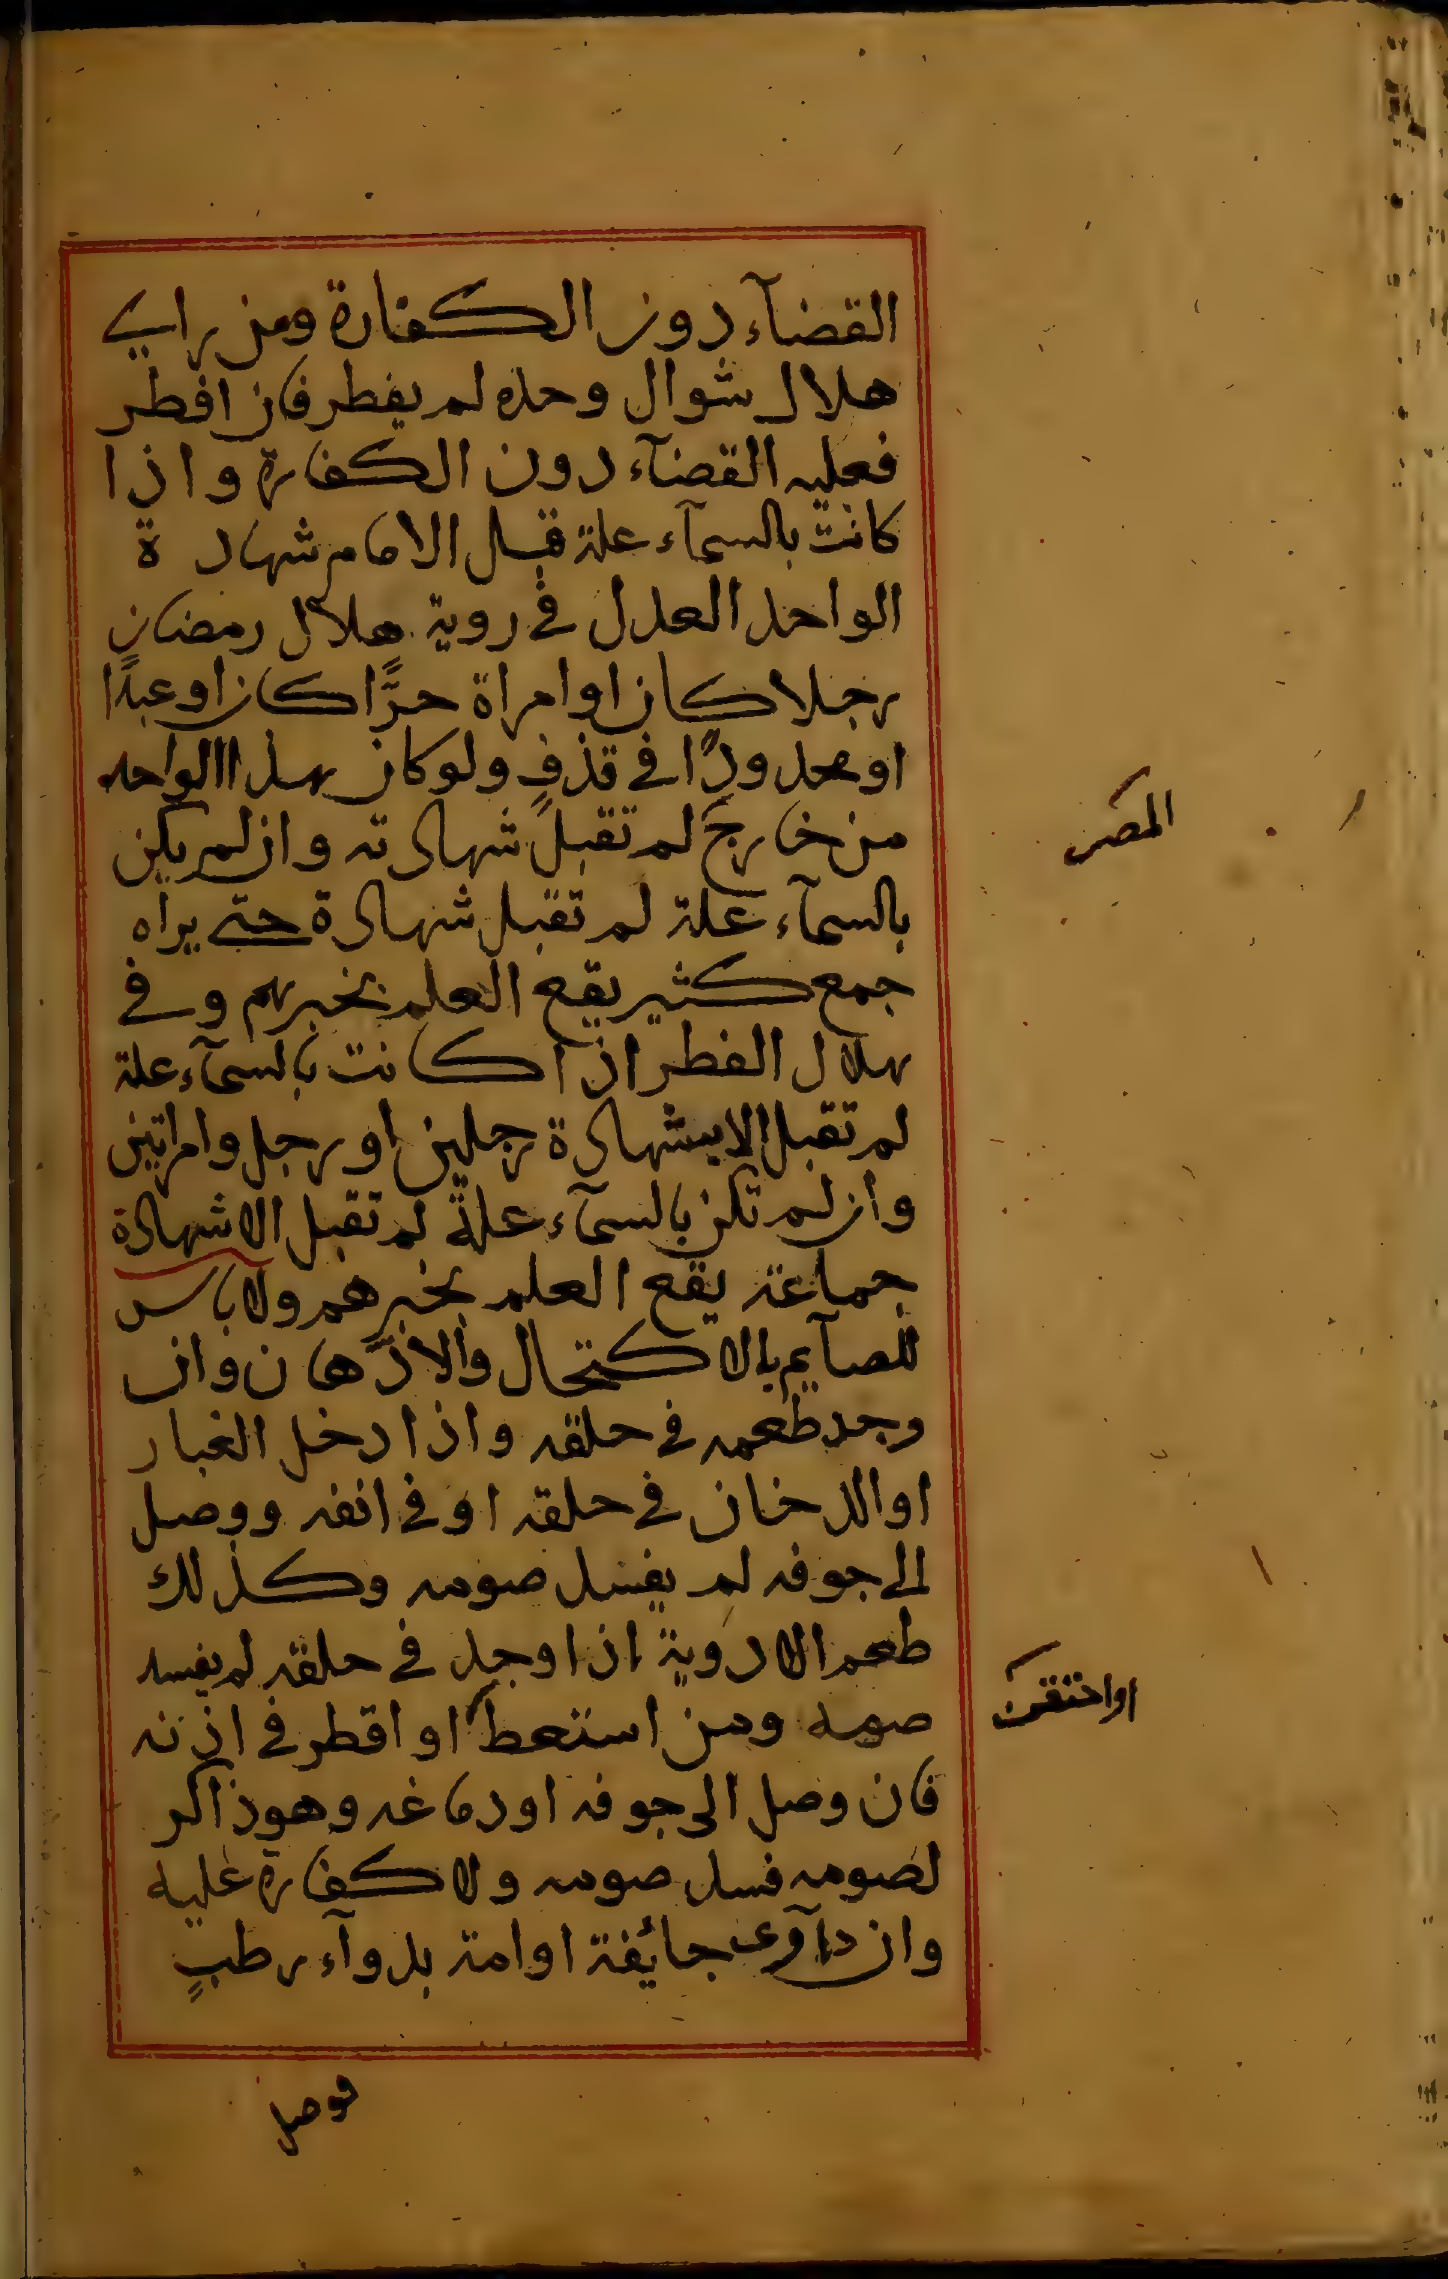 القضآء دون الكفارة ومن راى
هلال شوال وحده لم يفطر فان افطر
فعليه القضآء دون الكفارة واذا
كانت بالسمآء علة قبل الامام شهادة
الواحد العدل في روية هلال رمضان
رجلا كان او امراة حرًّا كان او عبدًا
او محدودًا في قذفٍ ولو كان هذا الواحد
من خارج لم تقبل شهادته وان لم يكن
المصر
بالسمآء علة لم تقبل شهادة حتى يراه
جمع كثير يقع العلم بخبرهم وفي
هلال الفطر اذا كانت بالسمآء علة
لم تقبل الا بشهادة رجلين او رجل وامراتين
وان لم تكن بالسمآء علة لم تقبل الا شهادة
جماعة يقع العلم بخبرهم ولا باس
للصآيم بالاكتحال والادّهان وان
وجد طعمه في حلقه واذا دخل الغبار
او الدخان في حلقه او في انفه ووصل
الى جوفه لم يفسد صومه وكذلك
طعم الادوية اذا وجد في حلقه لم يفسد
صومه ومن استعط او اقطر في اذنه
او احتقن
فان وصل الى جوفه او دماغه وهو ذاكر
لصومه فسد صومه ولا كفارة عليه
وان دآوى جائفة او امة بدوآء رطبٍ
فوصل